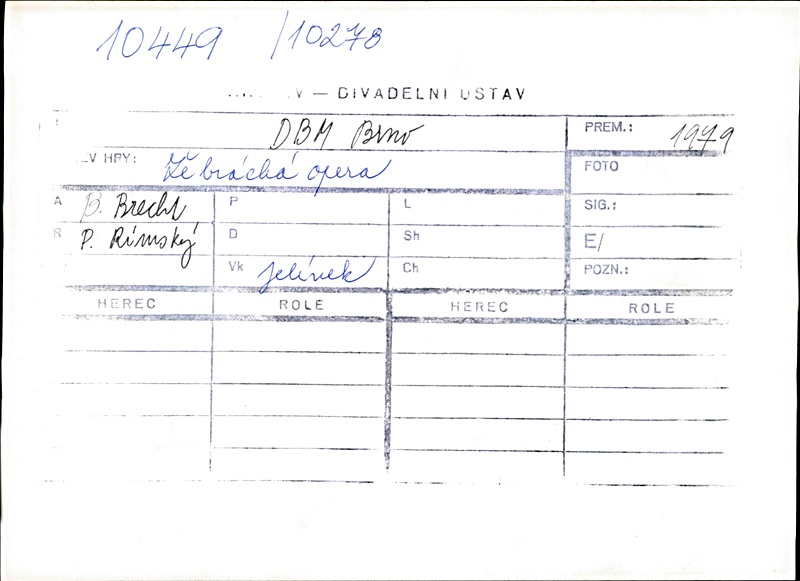 10449 /10278
V — DIVADELNI USTAV
DBM Brno
PREM.: 1979
EV HRY: Žebrácká opera
FOTO
A B. Brecht
P
L
SIG.:
R P. Rímský
D
Sh
E/
Vk Jelínek
Ch
POZN.:
HEREC ROLE HEREC ROLE